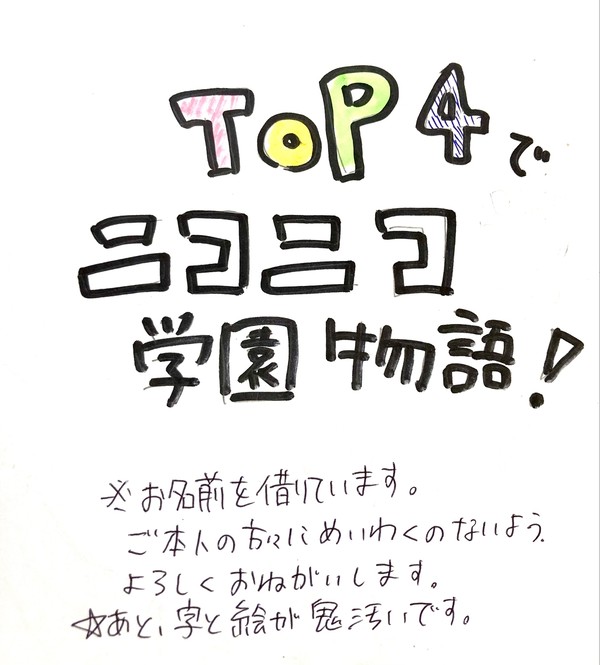 TOP4で
ニコニコ
学園物語!
※お名前を借りています。
ご本人の方々にめいわくのないよう
よろしくおねがいします。
☆あと、字と絵が鬼汚いです。